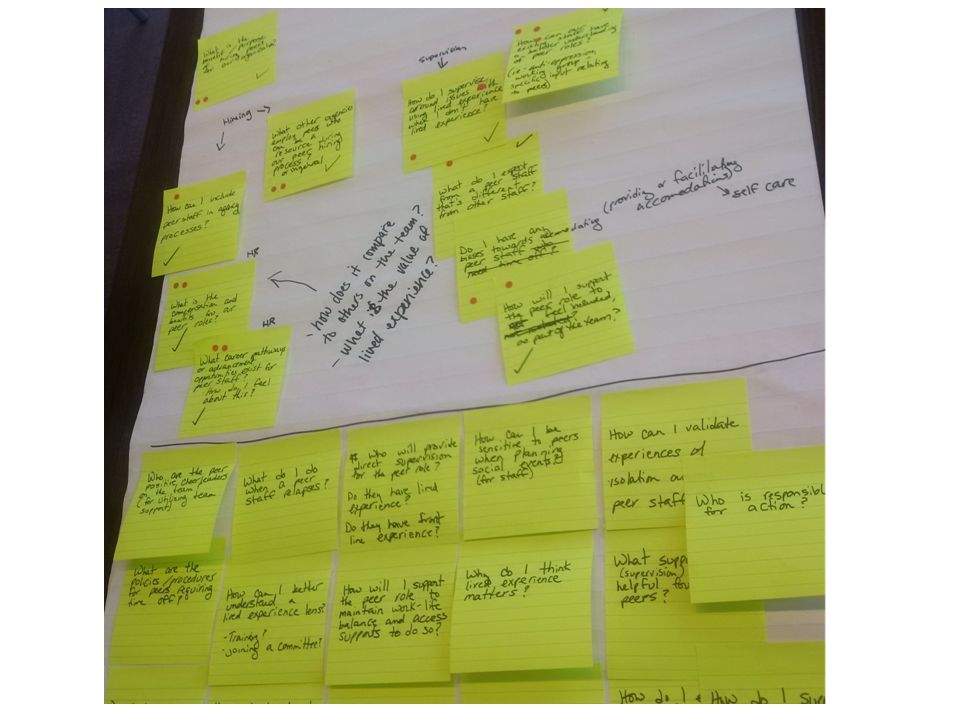 What is the
benefit / purpose
of hiring peers
for our organization?
Hiring
What other agencies
employ peers who
can be a
resource during
our peer hiring
process
or renewal
How can I include
peer staff in agency
processes?
HR
What is the
compensation and
benefits for our
peer roles?
HR
What career pathways
or advancement
opportunities exist for
peer staff?
How do I feel
about this?
- how does it compare
to others on the team?
- what is the value of
lived experience?
supervision
How do I supervise
around issues with
using lived experience
when I don't have
lived experience?
How can our
existing staff have
a better understanding
of peer roles?
(re-anti-oppression,
working group
specific input relating
to peers)
What do I expect
from a peer staff
that's different
from other staff?
Do I have any
biases towards accomodating
peer staff
need time off?
(providing or facilitating
accomodations)
self care
How will I support
the peer role to
feel included,
as part of the team?
Who are the peer
positive cheerleaders
on the team
(for utilizing team
support)
What do I do
when a peer
staff relapses?
Who will provide
direct supervision
for the peer role?
Do they have lived
experience?
Do they have front
line experience?
How can I be
sensitive to peers
when planning
social events?
(for staff)
How can I validate
experiences of
isolation
peer staff
Who is responsibl
for action?
What are the
policies/procedures
for peers requiring
time off?
How can I better
understand a
lived experience lens?
- Training?
- joining a committee?
How will I support
the peer role to
maintain work-life
balance and access
supports to do so?
Why do I think
lived experience
matters?
What supp
(supervision)
helpful for
peers?
How do I
How do I sup